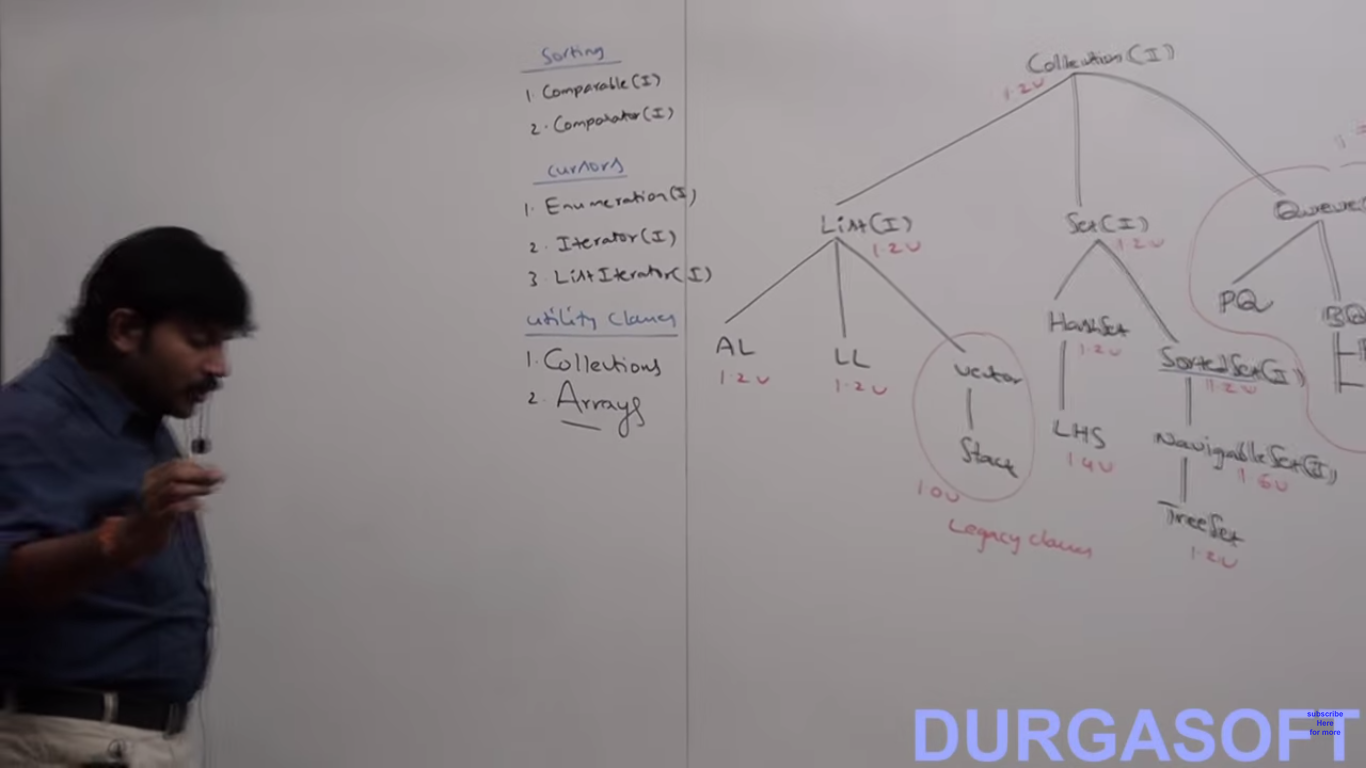 Sorting
1. Comparable(I)
2. Comparator(I)
Cursors
1. Enumeration(I)
2. Iterator(I)
3. ListIterator(I)
Utility Classes
1. Collections
2. Arrays
Collection(I)
1.2v
List(I)
1.2v
Set(I)
1.2v
Queue(
AL
1.2v
LL
1.2v
Vector
Stack
1.0v
Legacy classes
HashSet
1.2v
LHS
1.4v
SortedSet(I)
1.2v
NavigableSet(I)
1.6v
TreeSet
1.2v
PQ
BQ
DURGASOFT
subscribe
Here
for more